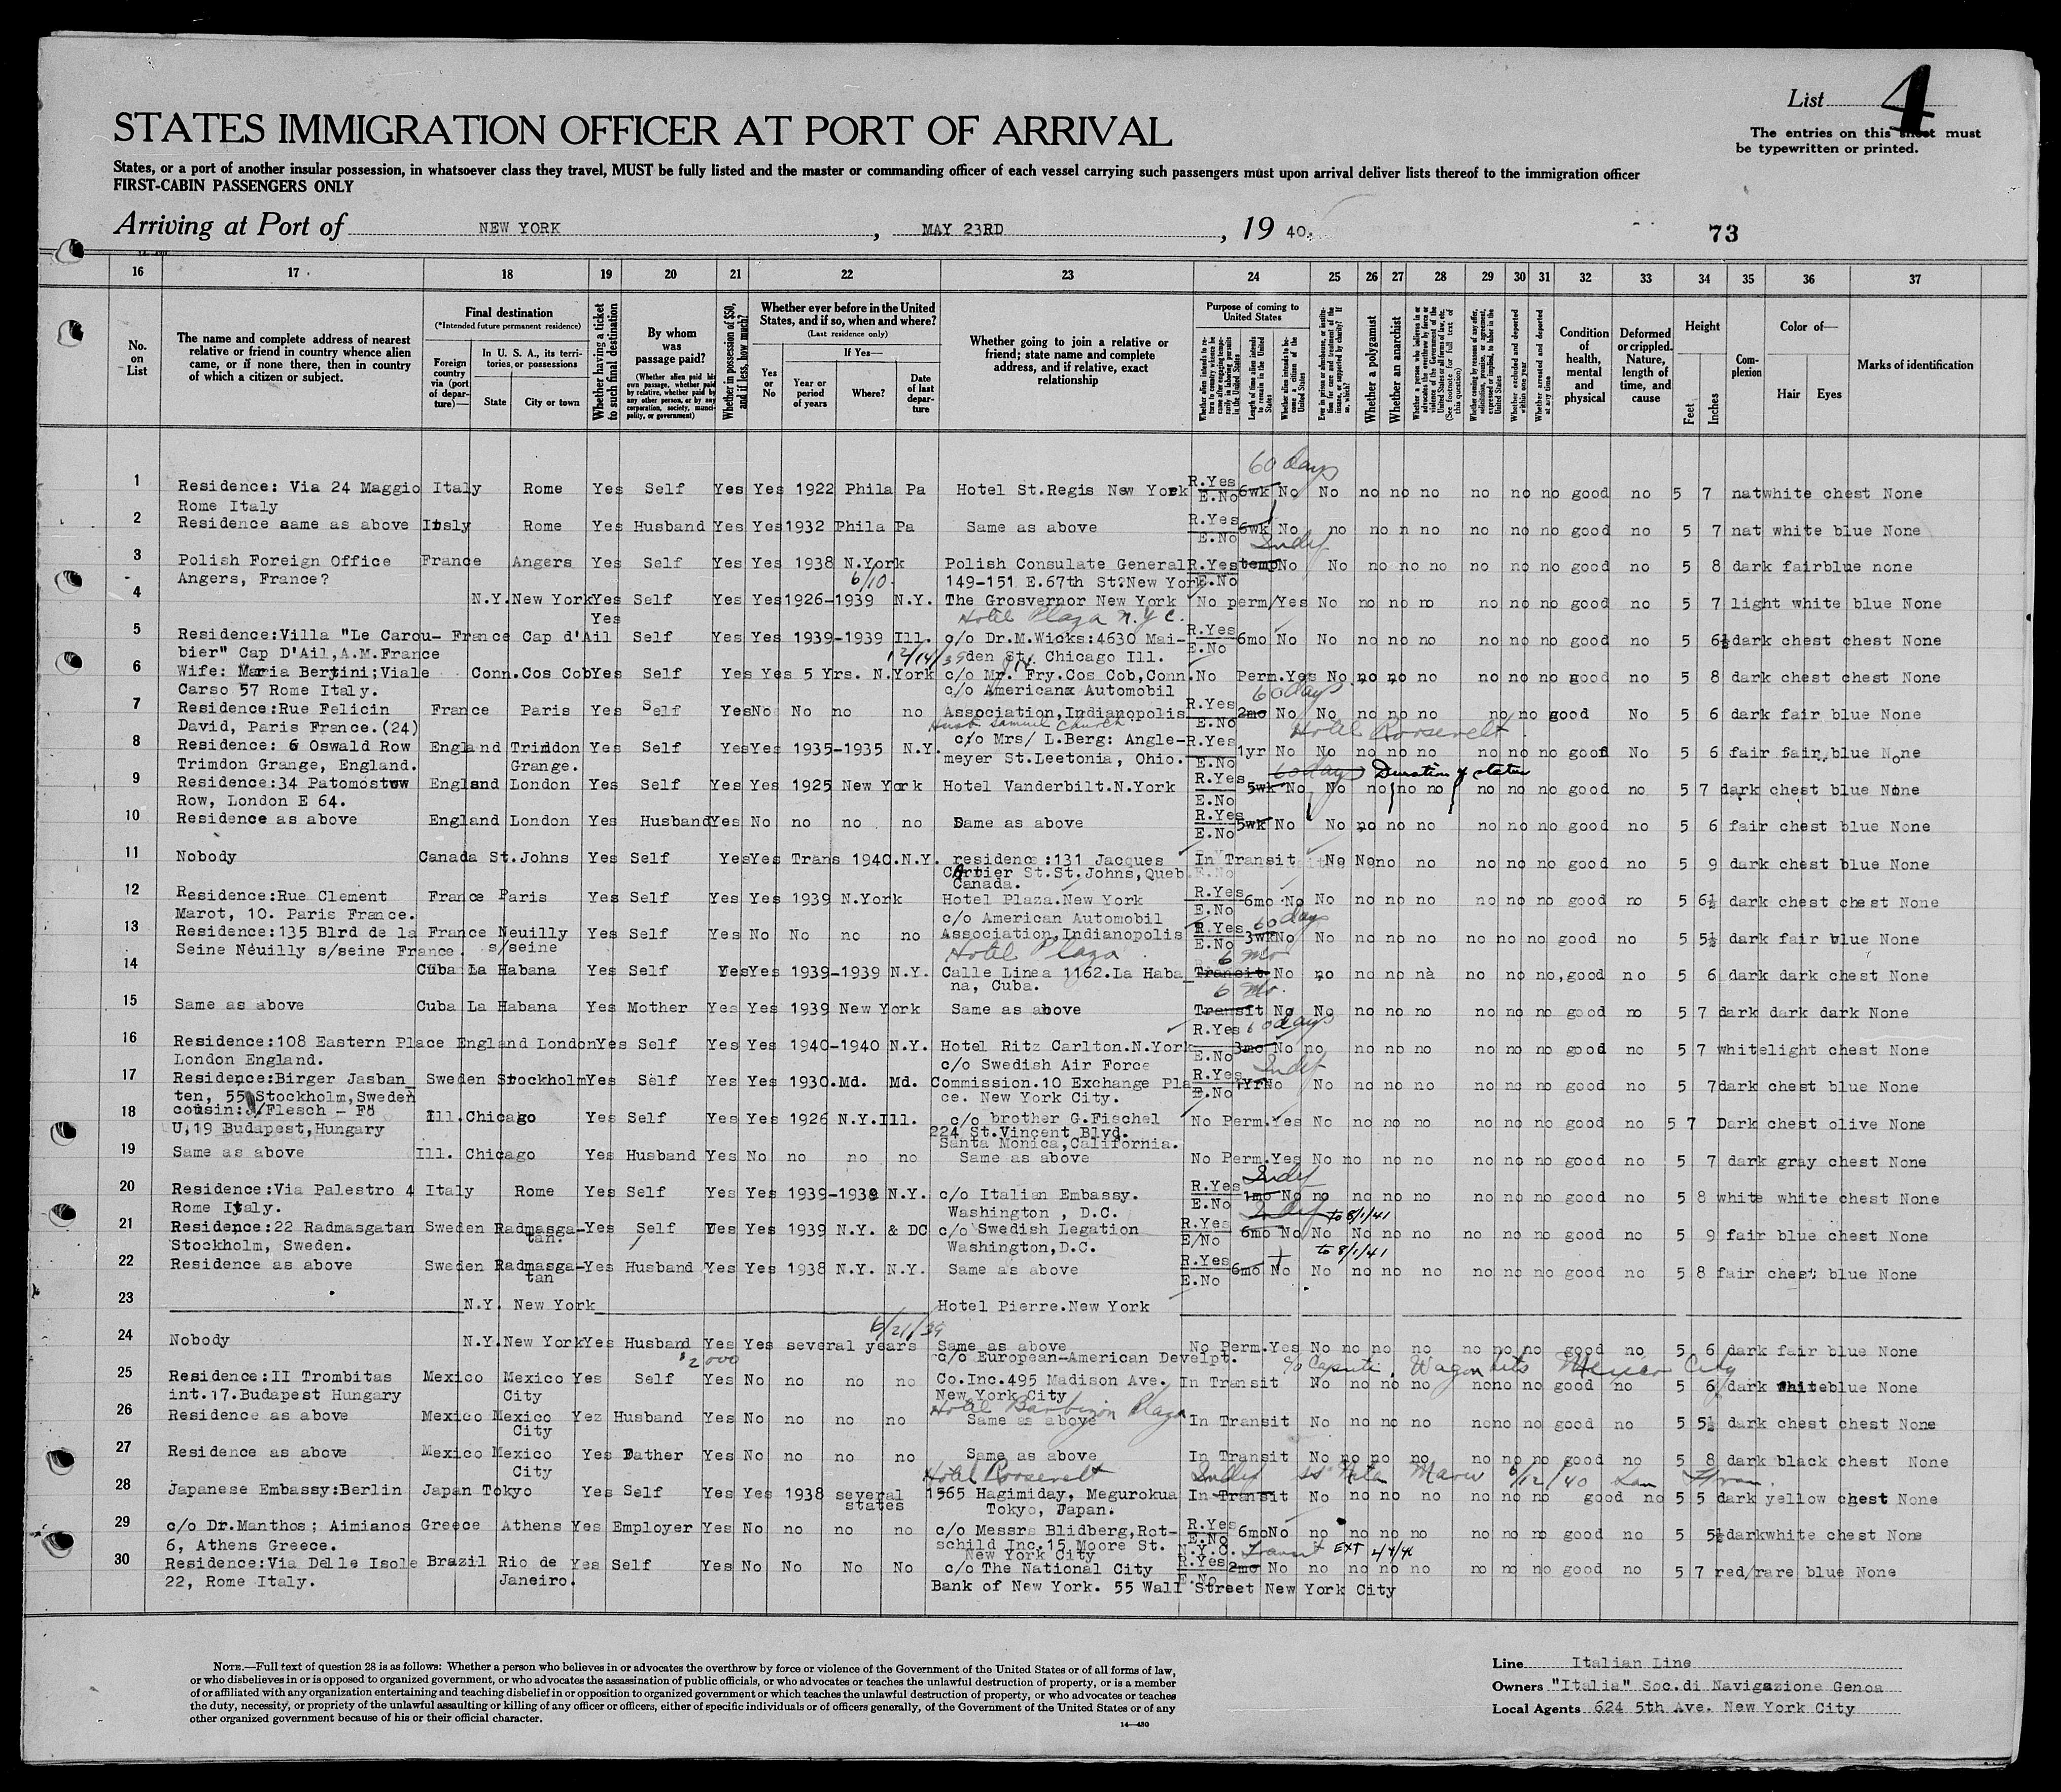 List 4
STATES IMMIGRATION OFFICER AT PORT OF ARRIVAL
The entries on this sheet must
be typewritten or printed.
States, or a port of another insular possession, in whatsoever class they travel, MUST be fully listed and the master or commanding officer of each vessel carrying such passengers must upon arrival deliver lists thereof to the immigration officer
FIRST-CABIN PASSENGERS ONLY
Arriving at Port of NEW YORK, MAY 23RD, 19 40. 73
16 17 18 19 20 21 22 23 24 25 26 27 28 29 30 31 32 33 34 35 36 37
No. on List
The name and complete address of nearest relative or friend in country whence alien came, or if none there, then in country of which a citizen or subject.
Final destination
(*Intended future permanent residence)
Foreign country via (port of departure)—
In U. S. A., its territories, or possessions
State
City or town
Whether having a ticket to such final destination
By whom was passage paid?
(Whether alien paid his own passage, whether paid by relative, whether paid by any other person, or by any corporation, society, municipality, or government)
Whether in possession of $50, and if less, how much?
Whether ever before in the United States, and if so, when and where?
(Last residence only)
Yes or No
If Yes—
Year or period of years
Where?
Date of last departure
Whether going to join a relative or friend; state name and complete address, and if relative, exact relationship
Purpose of coming to United States
Length of time alien intends to remain in the United States
Whether alien intends to become a citizen of the United States
Whether a polygamist
Whether an anarchist
Whether excluded and deported within one year
Whether arrested and deported at any time
Condition of health, mental and physical
Deformed or crippled. Nature, length of time, and cause
Height
Feet
Inches
Complexion
Color of—
Hair
Eyes
Marks of identification
60 days
1 Residence: Via 24 Maggio Italy Rome Yes Self Yes Yes 1922 Phila Pa Hotel St.Regis New York R.Yes E.No 6wk No No no no no no no no good no 5 7 nat white chest None
Rome Italy
2 Residence same as above Itsly Rome Yes Husband Yes Yes 1932 Phila Pa Same as above R.Yes E.No 6wk No no no n no no no no good no 5 7 nat white blue None
Indef
3 Polish Foreign Office France Angers Yes Self Yes Yes 1938 N.York Polish Consulate General R.Yes temp No No no no no no no no good no 5 8 dark fair blue none
Angers, France? 6/10 149-151 E.67th St.New York E.No
4 N.Y. New York Yes Self Yes Yes 1926-1939 N.Y. The Grosvernor New York No perm/Yes No no no no no no no good no 5 7 light white blue None
Yes Hotel Plaza N.Y.C.
5 Residence:Villa "Le Carou- France Cap d'Ail Self Yes Yes 1939-1939 Ill. c/o Dr.M.Wicks:4630 Mai- R.Yes E.No 6mo No No no no no no no no good no 5 6½ dark chest chest None
bier" Cap D'Ail,A.M.France 12/14/39 den St. Chicago Ill.
6 Wife: Maria Bertini;Viale Conn. Cos Cob Yes Self Yes Yes 5 Yrs. N.York c/o Mr. Fry.Cos Cob,Conn. No Perm.Yes No no no no no no no good no 5 8 dark chest chest None
Carso 57 Rome Italy. c/o Americanx Automobil 60 days
7 Residence:Rue Felicin France Paris Yes Self Yes No No no no Association,Indianopolis R.Yes E.No 2mo No No no no no no no good No 5 6 dark fair blue None
David, Paris France.(24) Husb. Samuel Church Hotel Roosevelt
8 Residence: 6 Oswald Row England Trimdon Yes Self Yes Yes 1935-1935 N.Y. c/o Mrs/ L.Berg: Angle- R.Yes E.No 1yr No No no no no no no no good No 5 6 fair fair blue None
Trimdon Grange, England. Grange. meyer St.Leetonia, Ohio.
60 days Duration of status
9 Residence:34 Patomostow England London Yes Self Yes Yes 1925 New York Hotel Vanderbilt.N.York R.Yes E.No 5wk No No no no no no no no good no 5 7 dark chest blue None
Row, London E 64.
10 Residence as above England London Yes Husband Yes No no no no Same as above R.Yes E.No 5wk No No no no no no no no good no 5 6 fair chest blue None
11 Nobody Canada St.Johns Yes Self Yes Yes Trans 1940.N.Y. residence:131 Jacques In Transit No No no no no no no good no 5 9 dark chest blue None
Cartier St.St.Johns,Queb.
Canada.
12 Residence:Rue Clement France Paris Yes Self Yes Yes 1939 N.York Hotel Plaza.New York R.Yes E.No 6mo No No no no no no no no good no 5 6½ dark chest chest None
Marot, 10. Paris France. c/o American Automobil 60 days
13 Residence:135 Blrd de la France Neuilly Yes Self Yes No No no no Association,Indianopolis R.Yes E.No 3wk No No no no no no no no good no 5 5½ dark fair blue None
Seine Neuilly s/seine France. s/seine Hotel Plaza 6 mo
14 Cuba La Habana Yes Self Yes Yes 1939-1939 N.Y. Calle Linea 1162.La Haba_ Transit No no no no nà no no no,good no 5 6 dark dark chest None
na, Cuba. 6 mo.
15 Same as above Cuba La Habana Yes Mother Yes Yes 1939 New York Same as above Transit No No no no no no no no good no 5 7 dark dark dark None
60 days
16 Residence:108 Eastern Place England London Yes Self Yes Yes 1940-1940 N.Y. Hotel Ritz Carlton.N.York R.Yes E.No 3mo No no no no no no no no good no 5 7 white light chest None
London England. c/o Swedish Air Force Indef
17 Residence:Birger Jasban_ Sweden Stockholm Yes Self Yes Yes 1930.Md. Md. Commission.10 Exchange Pla R.Yes E.No 1Yr No No no no no no no no good no 5 7 dark chest blue None
ten, 55 Stockholm,Sweden ce. New York City.
18 cousin: Flesch - Fö Ill. Chicago Yes Self Yes Yes 1926 N.Y.Ill. c/o brother G.Fischel No Perm.Yes No no no no no no no good no 5 7 Dark chest olive None
U,19 Budapest,Hungary 224 St.Vincent Blvd.
Santa Monica,California.
19 Same as above Ill. Chicago Yes Husband Yes No no no no Same as above No Perm.Yes No no no no no no no good no 5 7 dark gray chest None
Indef
20 Residence:Via Palestro 4 Italy Rome Yes Self Yes Yes 1939-1939 N.Y. c/o Italian Embassy. R.Yes E.No 1mo No no no no no no no no good no 5 8 white white chest None
Rome Italy. Washington , D.C. Indef to 8/1/41
21 Residence:22 Radmasgatan Sweden Radmasga- Yes Self Yes Yes 1939 N.Y. & DC c/o Swedish Legation R.Yes E/No 6mo No No No no no no no no good no 5 9 fair blue chest None
Stockholm, Sweden. tan. Washington,D.C. to 8/1/41
22 Residence as above Sweden Radmasga- Yes Husband Yes Yes 1938 N.Y. N.Y. Same as above R.Yes E.No 6mo No No no no no no no no good no 5 8 fair chest blue None
tan
23 N.Y. New York Hotel Pierre.New York
6/21/39
24 Nobody N.Y. New York Yes Husband Yes Yes several years Same as above No Perm.Yes No no no no no no no good no 5 6 dark fair blue None
$2000 c/o European-American Develpt. c/o Wagon Lits Mexico City
25 Residence:II Trombitas Mexico Mexico Yes Self Yes No no no no Co.Inc.495 Madison Ave. In Transit No no no no no no no good no 5 6 dark white blue None
int.17.Budapest Hungary City New York City
Hotel Barbizon Plaza
26 Residence as above Mexico Mexico Yez Husband Yes No no no no Same as above In Transit No no no no no no no good no 5 5½ dark chest chest None
City
27 Residence as above Mexico Mexico Yes Father Yes No no no no Same as above In Transit No no no no no no no good no 5 8 dark black chest None
City Hotel Roosevelt Indef SS Maru 6/12/40 San Fran.
28 Japanese Embassy:Berlin Japan Tokyo Yes Self Yes Yes 1938 several 1565 Hagimiday, Megurokua In Transit No no no no no no no good no 5 5 dark yellow chest None
states Tokyo, Japan.
29 c/o Dr.Manthos; Aimianos Greece Athens Yes Employer Yes No no no no c/o Messrs Blidberg,Rot- R.Yes E.No 6mo No no no no no no no no good no 5 5½ dark white chest None
6, Athens Greece. schild Inc.15 Moore St. N.Y.C. Transit EXT
New York City
30 Residence:Via Delle Isole Brazil Rio de Yes Self Yes No No No No c/o The National City R.Yes E.No 2mo No no no no no no no no good no 5 7 red/rare blue None
22, Rome Italy. Janeiro. Bank of New York. 55 Wall Street New York City
NOTE.—Full text of question 28 is as follows: Whether a person who believes in or advocates the overthrow by force or violence of the Government of the United States or of all forms of law,
or who disbelieves in or is opposed to organized government, or who advocates the assassination of public officials, or who advocates or teaches the unlawful destruction of property, or is a member
of or affiliated with any organization entertaining and teaching disbelief in or opposition to organized government or which teaches the unlawful destruction of property, or who advocates or teaches
the duty, necessity, or propriety of the unlawful assaulting or killing of any officer or officers, either of specific individuals or of officers generally, of the Government of the United States or of any
other organized government because of his or their official character.
14—430
Line Italian Line
Owners "Italia" Soc.di Navigazione Genoa
Local Agents 624 5th Ave. New York City